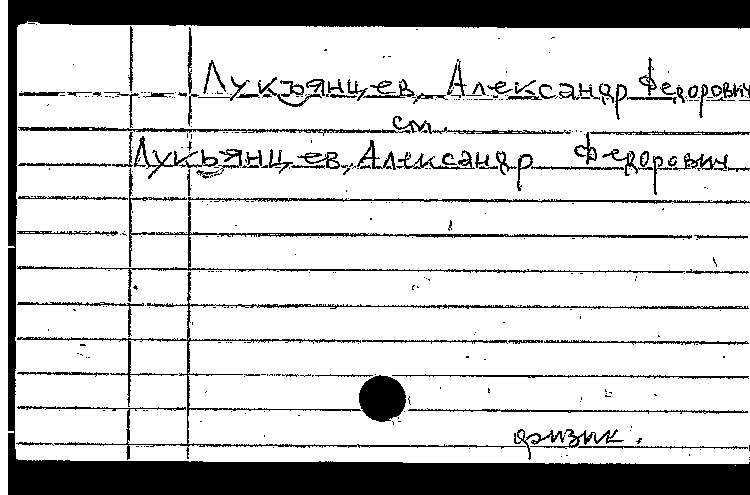 Лукъянцев, Александр Федорович
см.
Лукьянцев, Александр Федорович
физик.